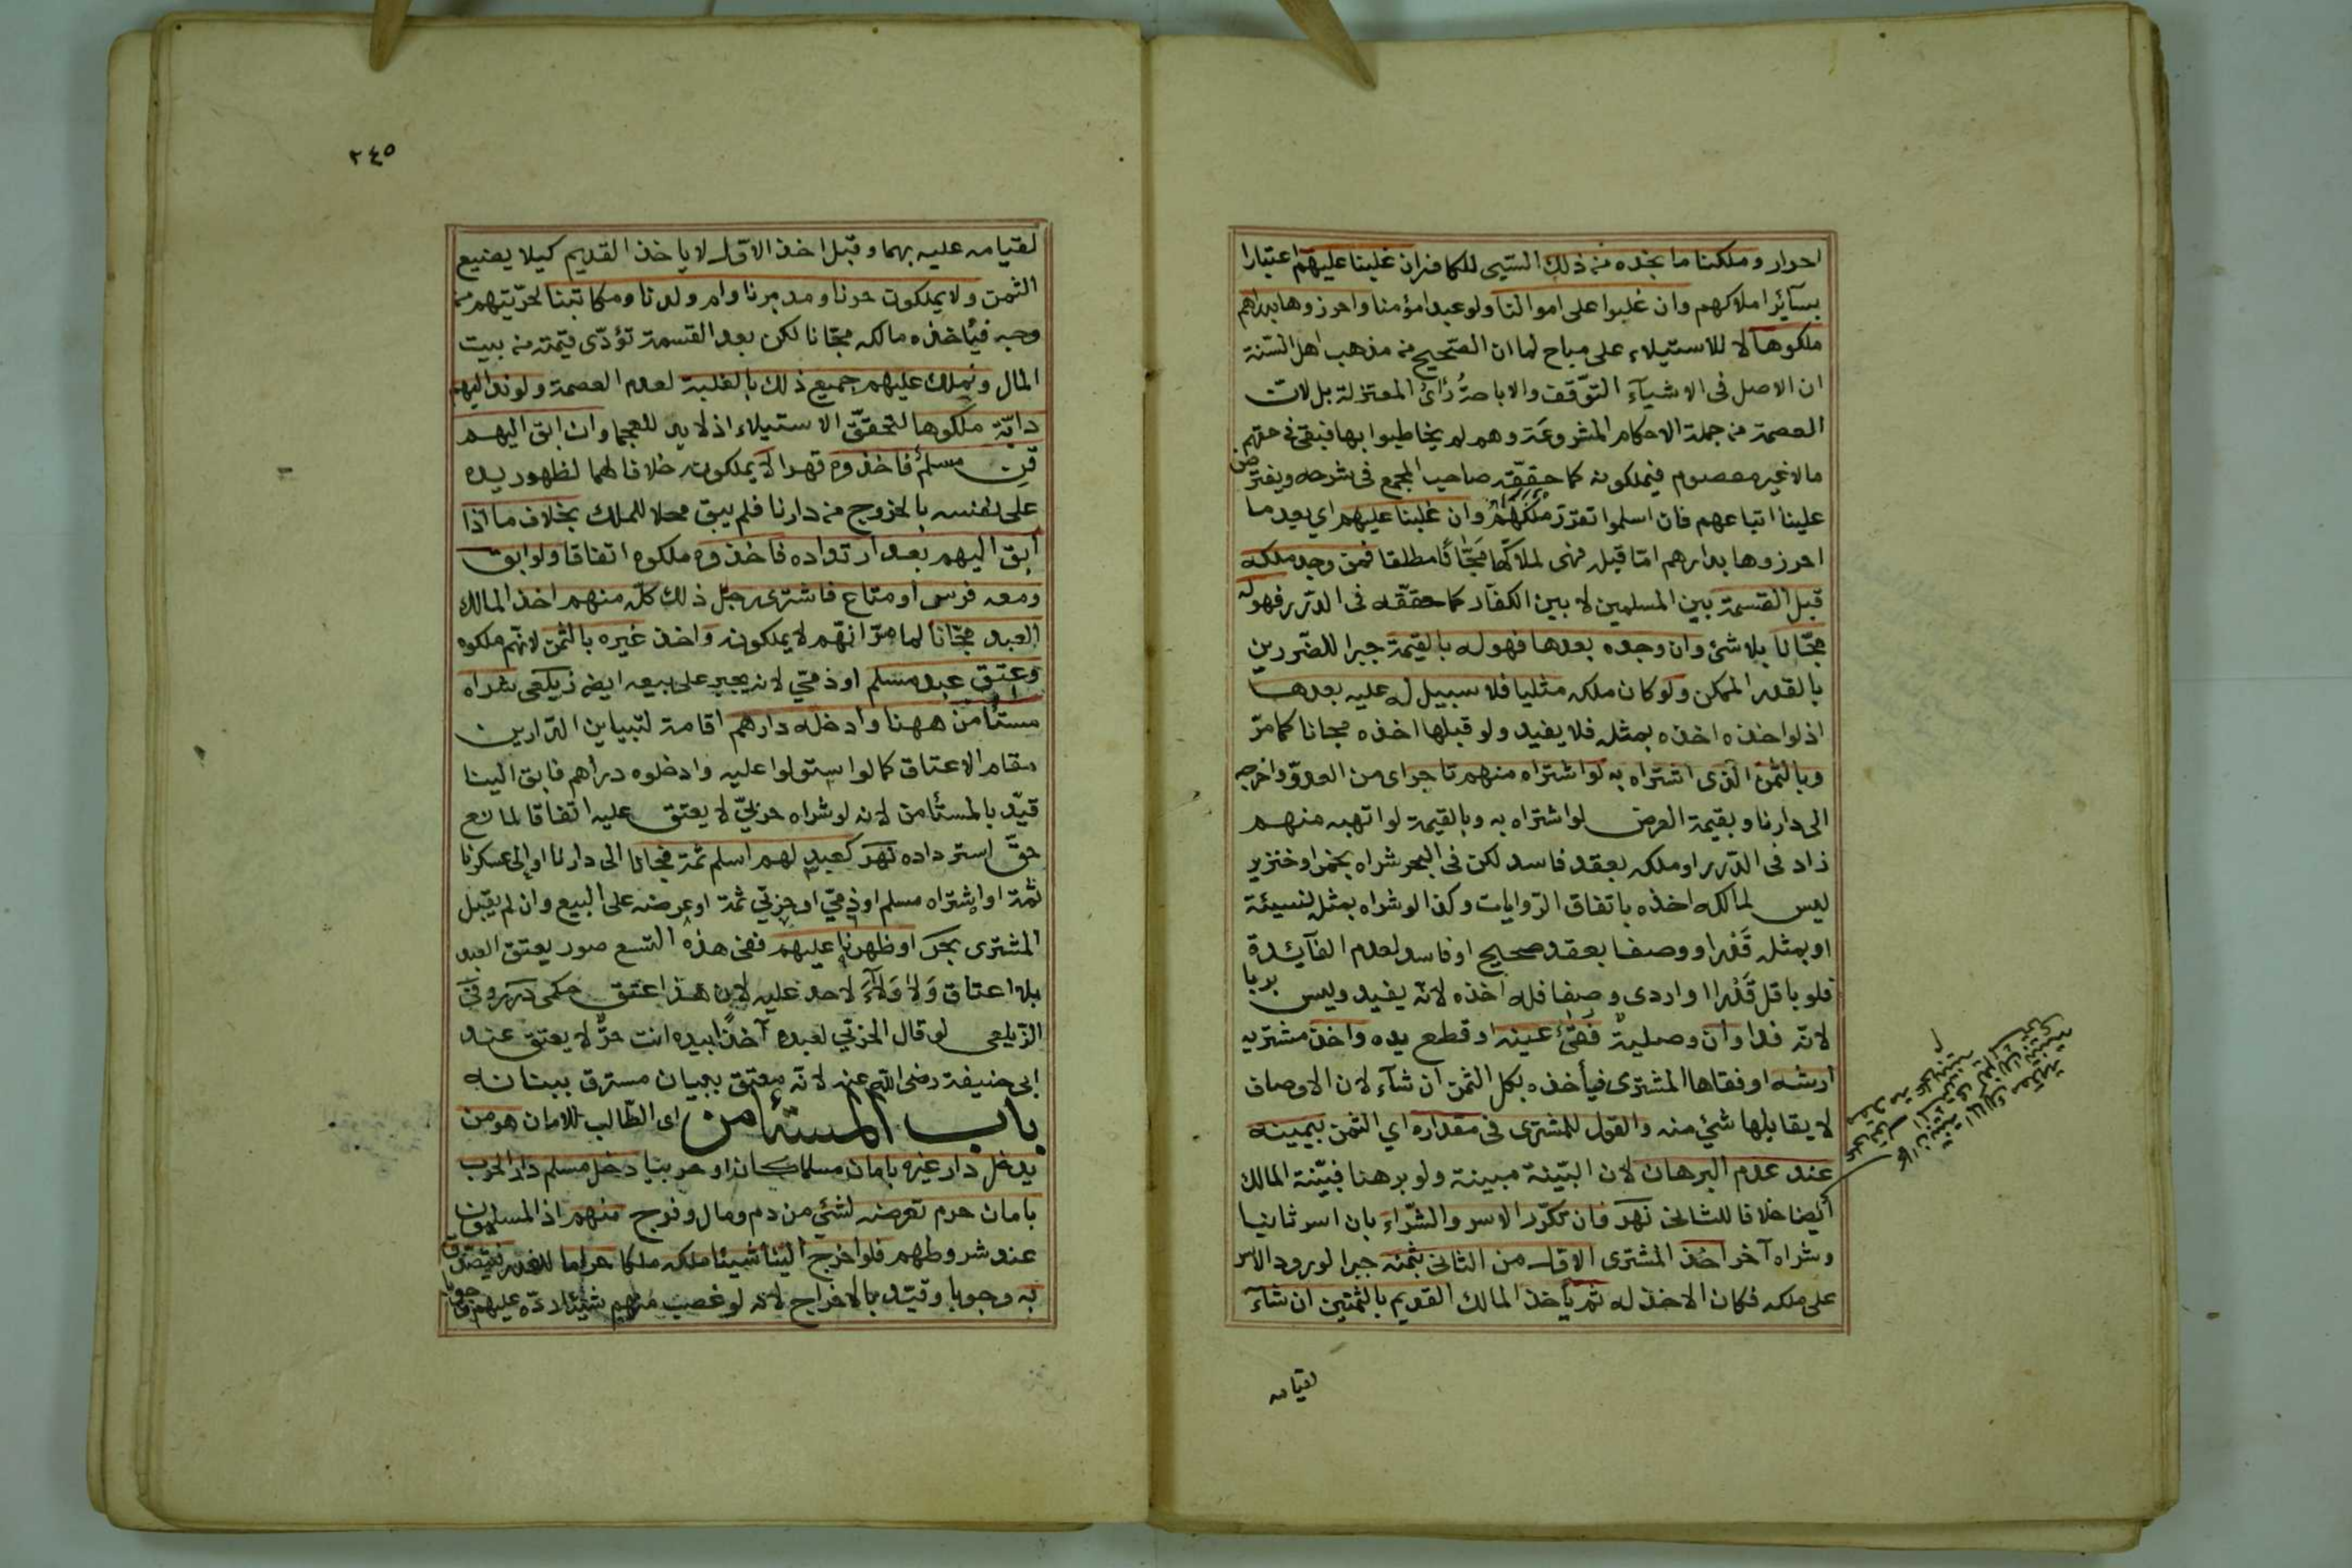 احرار وملكنا ما نجده من ذلك السبي للكافر ان غلبنا عليهم اعتبارا
بسائر املاكهم وان غلبوا على اموالنا ولو عبدا مؤمنا واحرزوها بدارهم
ملكوها لا للاستيلاء على مباح لما ان الصحيح من مذهب اهل السنة
ان الاصل فى الاشياء التوقف والاباحة رأى المعتزلة بل لان
العصمة من جملة الاحكام المشروعة وهم لم يخاطبوا بها فبقى فى حقهم
مالا غير معصوم فيملكونه كما حققه صاحب المجمع فى شرحه ويفترض
علينا اتباعهم فان اسلموا تقرر ملكهم وان غلبنا عليهم اي بعد ما
احرزوها بدارهم امّا قبله فهى لملاكها مجّانًا مطلقا فمن وجد ملكه
قبل القسمة بين المسلمين لا بين الكفّار كما حققه فى الدّرر فهو له
مجّانا بلا شئ وان وجده بعدها فهو له بالقيمة جبرا للضّررين
بالقدر الممكن ولو كان ملكه مثليا فلا سبيل له عليه بعدها
اذ لو اخذه اخذه بمثله فلا يفيد ولو قبلها اخذه مجانا كما مرّ
وبالثمن الّذى اشتراه به لو اشتراه منهم تاجر اى من العدوّ واخرجه
الى دارنا وبقيمة العرض لو اشتراه به وبالقيمة لو اتهبه منهم
زاد فى الدّرر او ملكه بعقد فاسد لكن فى البحر شراه بخمر او خنزير
ليس لمالكه اخذه باتفاق الرّوايات وكذا لو شراه بمثله نسيئة
او بمثله قَدْرا ووصفا بعقد صحيح او فاسد لعدم الفآئدة
فلو باقل قَدْرا او اردى وصفا فله اخذه لانّه يفيد وليس بربا
لانّه فدا وان وصلية فقئ عينه او قطع يده واخذ مشتريه
ارشه او فقاها المشترى فيأخذه بكل الثمن ان شآء لان الاوصاف
لا يقابلها شئ منه والقول للمشترى فى مقداره اي الثمن بيمينه
عند عدم البرهان لان البيّنة مبينة ولو برهنا فبيّنة المالك
أيضا خلافا للثانى نهر فان تكرّر الاسر والشّراء بان اسر ثانيا
وشراه آخر اخذ المشترى الاول من الثانى بثمنه جبرا لورود الاسر
على ملكه فكان الاخذ له ثم يأخذ المالك القديم بالثمنين ان شآء
لقيامه
٢٤٥
لقيامه عليه بهما وقبل اخذ الاوّل لا ياخذ القديم كيلا يضيع
الثمن ولا يملكون حرنا ومدبرنا وام ولدنا ومكاتبنا لحرّيتهم من
وجه فيأخذه مالكه مجّانا لكن بعد القسمة تؤدّى قيمته من بيت
المال ونملك عليهم جميع ذلك بالغلبة لعدم العصمة ولو ند اليهم
دابّة ملكوها لتحقّق الاستيلاء اذ لا يد للعجما وان ابق اليهم
قنّ مسلم فاخذوه قهرا لا يملكونه خلافا لهما لظهور يده
على نفسه بالخروج من دارنا فلم يبق محلا للملك بخلاف ما اذا
ابق اليهم بعد ارتداده فاخذوه ملكوه اتفاقا ولو ابق
ومعه فرس او متاع فاشترى رجل ذلك كلّه منهم اخذ المالك
العبد مجّانا لما مرّ انّهم لا يملكونه واخذ غيره بالثمن لانهم ملكوه
وعتق عبد مسلم او ذمّي لانه يجبر على بيعه ايضا زيلعى شراه
مستأمن ههنا وادخله دارهم اقامة لتباين الدّارين
مقام الاعتاق كما لو استولوا عليه وادخلوه دارهم فابق الينا
قيّد بالمستأمن لانه لو شراه حربيّ لا يعتق عليه اتفاقا لمانع
حقّ استرداده نهر كعبد لهم اسلم ثمة فجانا الى دارنا او الى عسكرنا
ثمة او اشتراه مسلم او ذمّي او حربّي ثمة او عرضه على البيع وان لم يقبل
المشترى بحر او ظهرنا عليهم ففى هذه التسع صور يعتق العبد
بلا اعتاق وَلا وَلآءَ لاحد عليه لان هذا اعتق حكمى درر وفى
الزّيلعى لو قال الحربّي لعبده آخذا بيده انت حرّ لا يعتق عند
ابى حنيفة رضى الله عنه لانّه معتق ببيان مسترق ببنانه
باب المستأمن اى الطّالب للامان هو من
يدخل دار غيره بامان مسلما كان او حربيا دخل مسلم دار الحرب
بامان حرم تعرضه لشئ من دم ومال وفرج منهم اذ المسلمون
عند شروطهم فلو اخرج الينا شيئا ملكه ملكا حراما للغدر فيتصدق
به وجوبا وقيّد بالاخراج لانه لو غصب منهم شيئا ردّه عليهم وجوبا